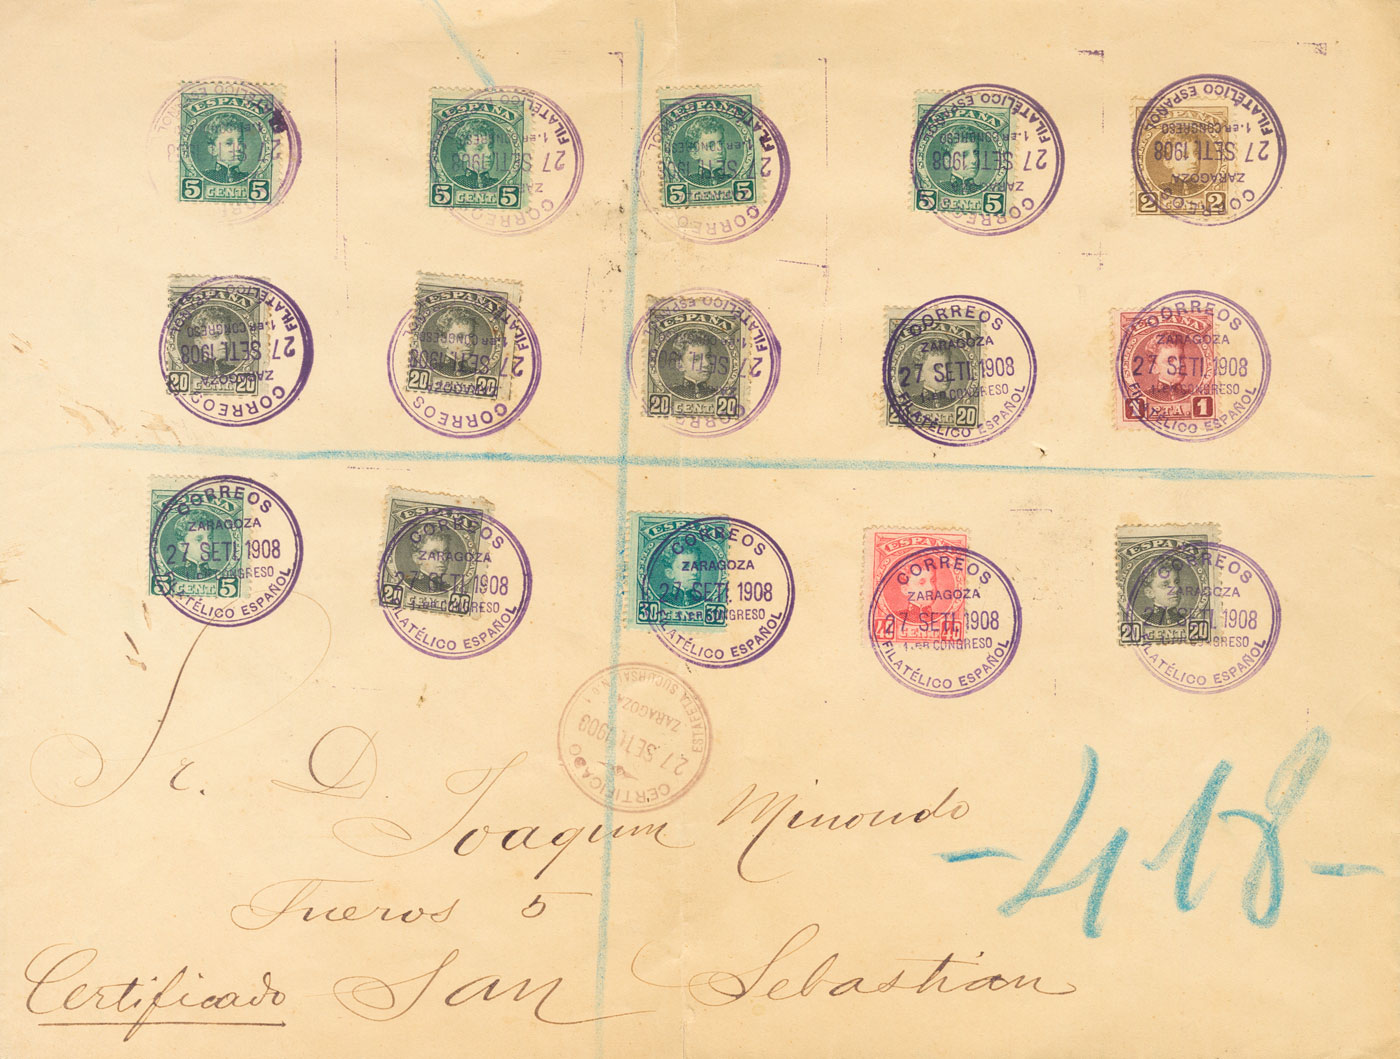 ESPAÑA 5 CENT 5
ESPAÑA 5 CENT 5 CORREOS ZARAGOZA 27 SETI. 1908 1.er CONGRESO FILATÉLICO ESPAÑOL
ESPAÑA 5 CENT 5 CORREOS 27 FILATÉLICO ESPAÑOL
ESPAÑA 5 CENT 5 CORREOS ZARAGOZA 27 SETI. 1908 1.er CONGRESO FILATÉLICO ESPAÑOL
2 CENT 2 CORREOS ZARAGOZA 27 SETI. 1908 1.er CONGRESO FILATÉLICO ESPAÑOL
ESPAÑA 20 CENT 20 CORREOS ZARAGOZA 27 SETI. 1908 1.er CONGRESO FILATÉLICO ESPAÑOL
ESPAÑA 20 CENT 20 CORREOS ZARAGOZA 27 SETI. 1908 1.er CONGRESO FILATÉLICO
ESPAÑA 20 CENT 20 CORREOS 27 FILATÉLICO ESPAÑOL
20 CORREOS ZARAGOZA 27 SETI. 1908 1.er CONGRESO FILATÉLICO ESPAÑOL
ESPAÑA 1 PTA. 1 CORREOS ZARAGOZA 27 SETI. 1908 1.er CONGRESO FILATÉLICO ESPAÑOL
ESPAÑA 5 CENT 5 CORREOS ZARAGOZA 27 SETI. 1908 1.er CONGRESO FILATÉLICO ESPAÑOL
ESPAÑA 20 CENT 20 CORREOS ZARAGOZA 27 SETI. 1908 1.er CONGRESO FILATÉLICO ESPAÑOL
ESPAÑA 30 CENT 30 CORREOS ZARAGOZA 27 SETI. 1908 1.er CONGRESO FILATÉLICO ESPAÑOL
ESPAÑA CENT CORREOS ZARAGOZA 27 SETI. 1908 1.er CONGRESO FILATÉLICO ESPAÑOL
ESPAÑA 20 CENT 20 CORREOS ZARAGOZA 27 SETI. 1908 CONGRESO FILATÉLICO ESPAÑOL
CERTIFICADO 27 SETI. 1908 ZARAGOZA ESTAFETA SUCURSAL
Sr. D.
Joaquim Minondo
Fueros 5
Certificado San Sebastián
-418-